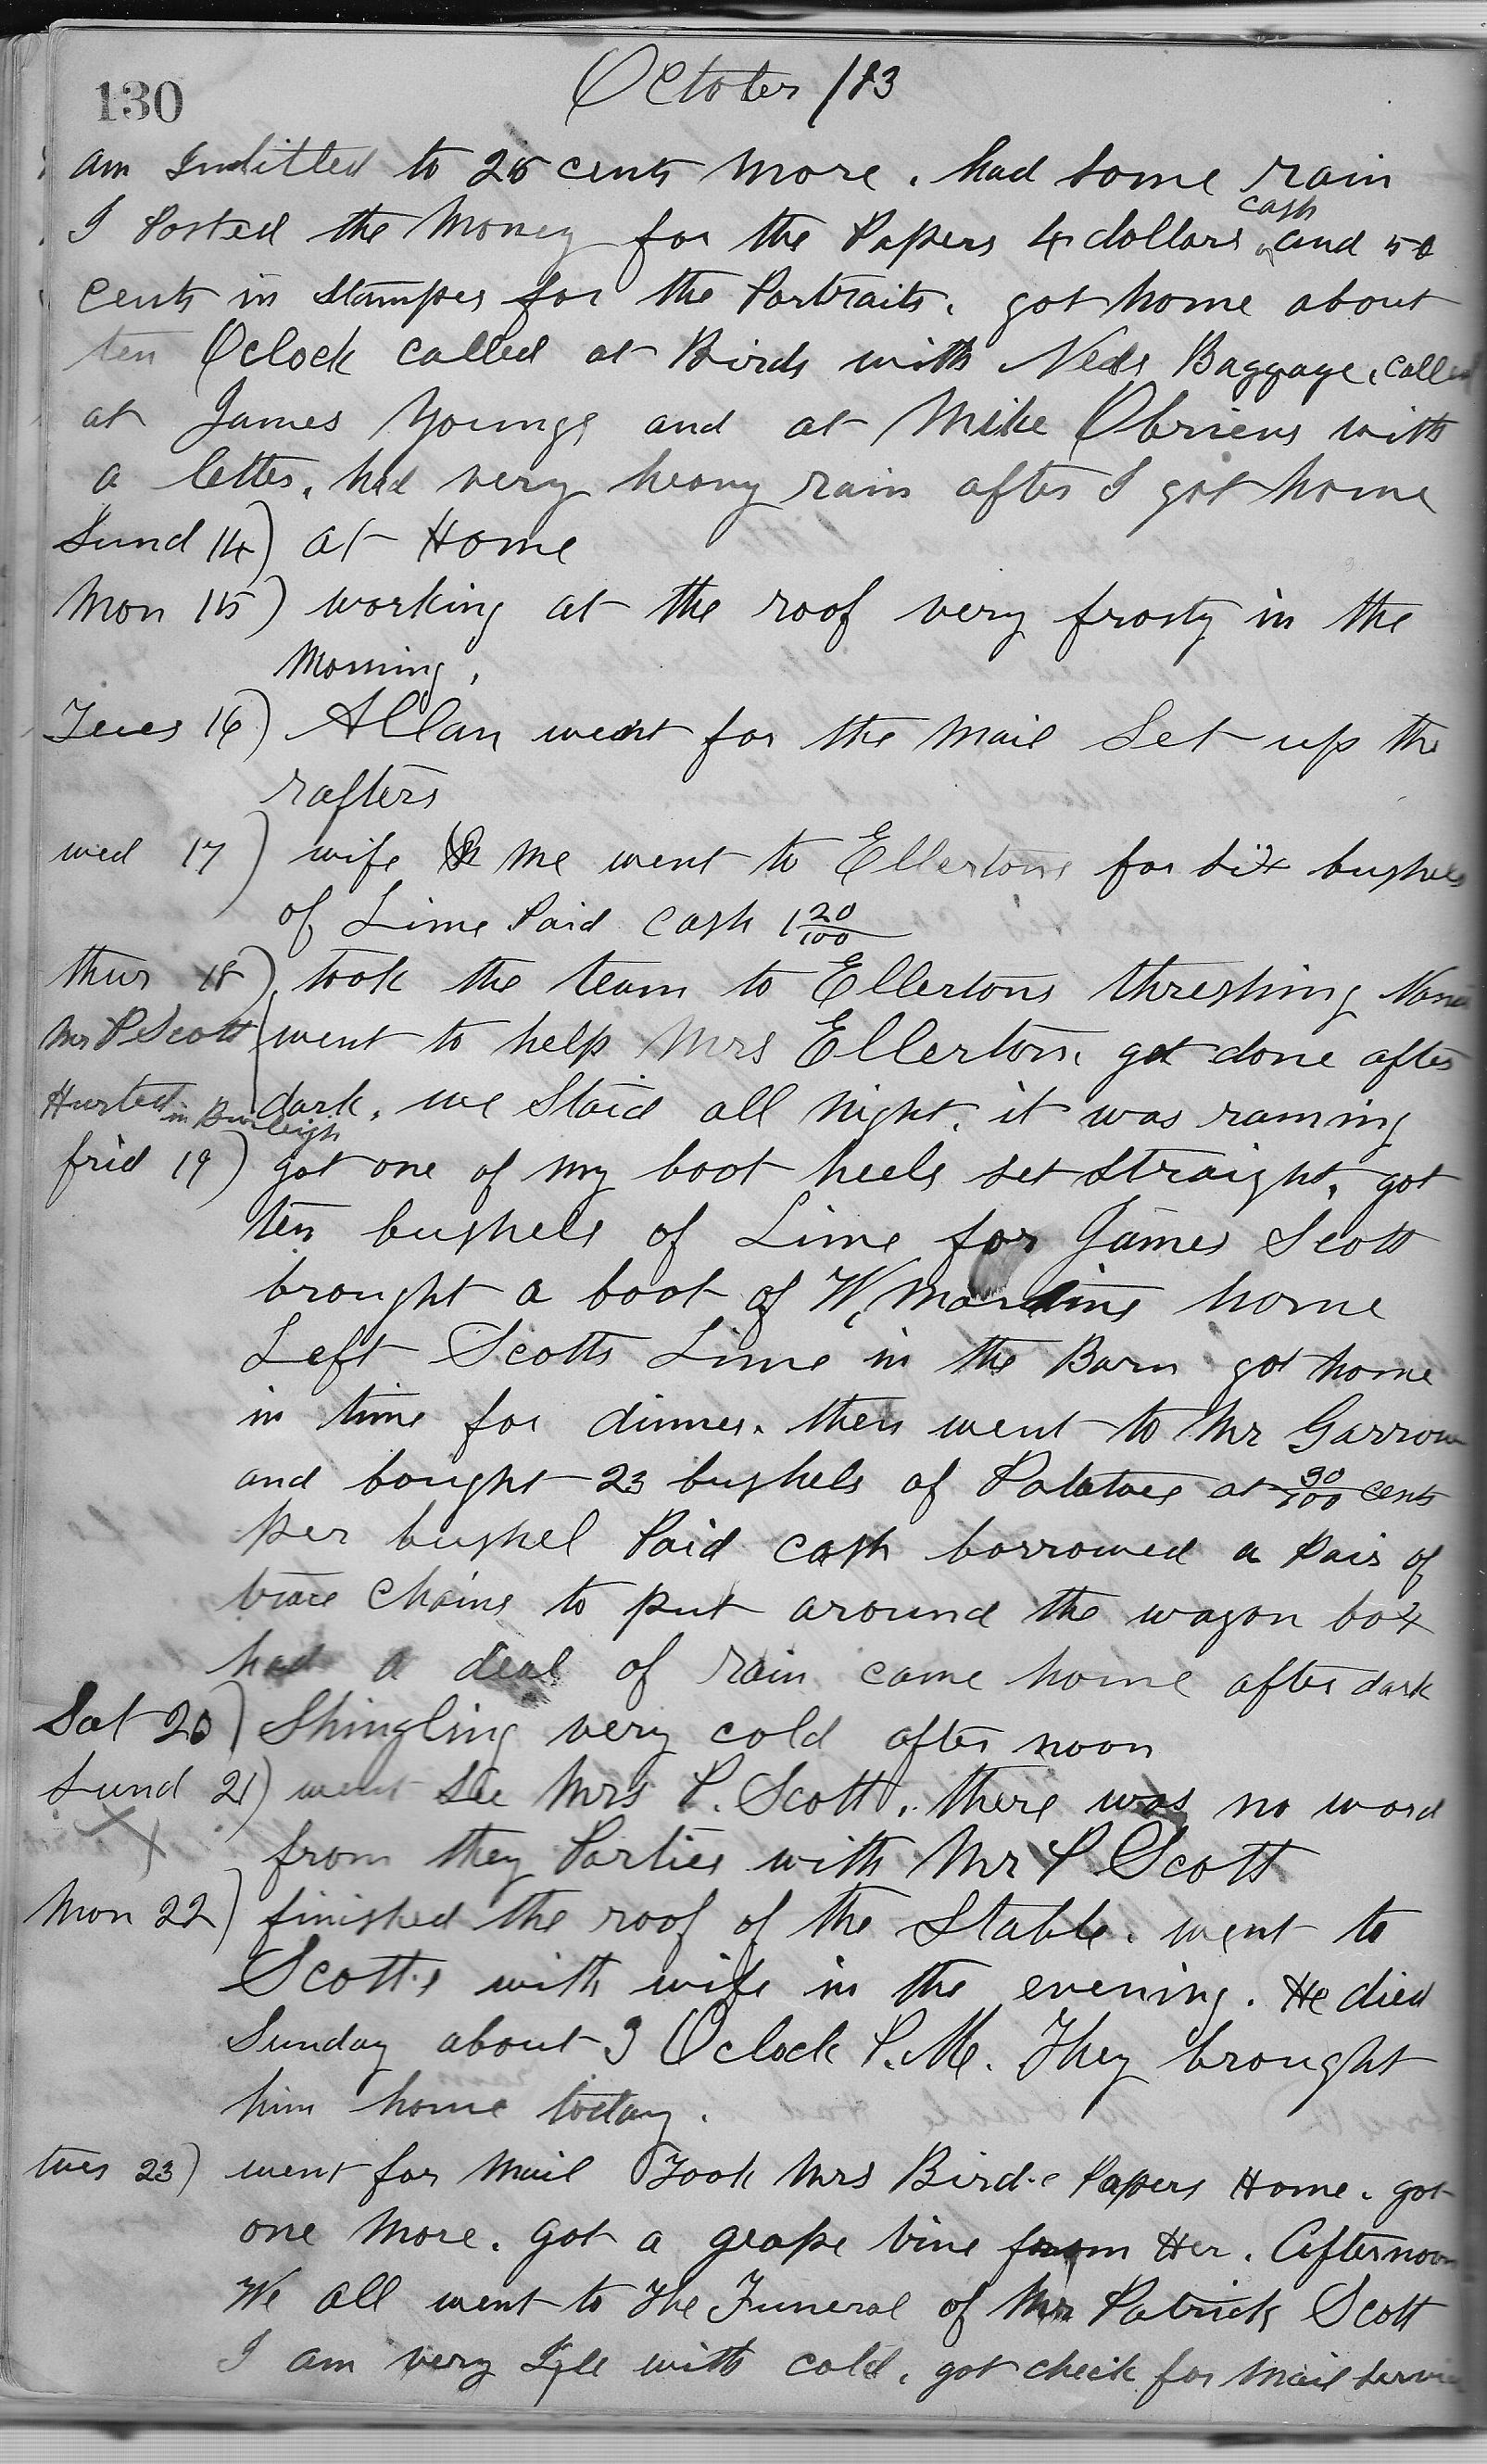 130
October /83
am Inditted to 25 cents more. had some rain
I Posted the Money for the Papers 4 dollars cash and 50
cents in stampes for the Portraits. got home about
ten Oclock called at Birds with Neds Baggage. called
at James Youngs and at Mike Obriens with
a letter. had very heavy rain after I got home
Sund 14) at Home
Mon 15) working at the roof very frosty in the
Morning.
Tues 16) Allan went for the Mail Set up the
rafters
wed 17) wife & me went to Ellertons for six bushels
of Lime Paid Cash 1 20/100
thur 18) took the team to Ellertons threshing
Mr P Scott went to help Mrs Ellerton. got done after
Hurted in Burleigh dark. we Staid all night. it was raining
frid 19) got one of my boot heels set straight. got
ten bushels of Lime for James Scott
brought a boot of W. Martins home
Left Scotts Lime in the Barn got home
in time for dinner. then went to Mr Garrow
and bought 23 bushels of Potatoes at 30/100 cents
per bushel Paid cash borrowed a Pair of
trace Chains to put around the wagon box
had a deal of rain came home after dark
Sat 20) Shingling very cold after noon
Sund 21) went See Mrs P. Scott. there was no word
from they Parties with Mr P Scott
Mon 22) finished the roof of the Stable. went to
Scott's with wife in the evening. He died
Sunday about 3 Oclock P.M. They brought
him home today.
tues 23) went for Mail Took Mrs Bird's Papers Home. got
one More. got a grape vine from Her. Afternoon
We all went to The Funeral of Mr Patrick Scott
I am very Ill with cold. got check for Mail Service